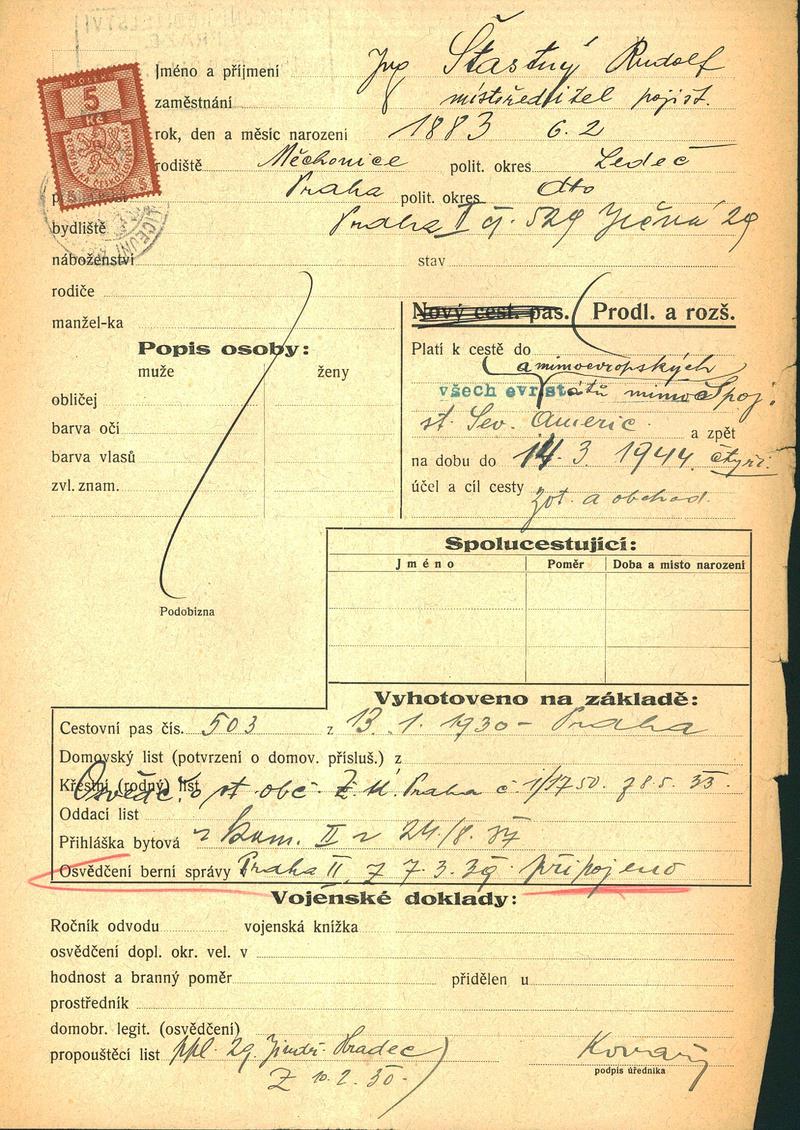 KOLEK
5
Kč
Jméno a příjmení Ing Šťastný Rudolf
zaměstnání místoředitel pojišť.
rok, den a měsíc narození 1883 6. 2
rodiště Měchonice polit. okres Ledeč
Praha polit. okres dto
bydliště Praha II čj. 529 Ječná 29
náboženství stav
rodiče
manžel-ka
Nový cest. pas. Prodl. a rozš.
Popis osoby:
muže ženy
obličej
barva očí
barva vlasů
zvl. znam.
Podobizna
Platí k cestě do
a mimoevropských
všech evr. států mimo Spoj.
st. Sev. Americ. a zpět
na dobu do 14. 3. 1944. čtyři.
účel a cíl cesty zot. a obchod.
Spolucestující:
Jméno Poměr Doba a místo narození
Vyhotoveno na základě:
Cestovní pas čís. 503 z 13. 1. 1930 - Praha
Domovský list (potvrzení o domov. přísluš.) z
Křestní (rodný) list Osvědč. o st. obč. Z. M. Praha č. 1/1750. z 8. 5. 33.
Oddací list
Přihláška bytová z kom. II z 24./8. 37
Osvědčení berní správy Praha II. z 7. 3. 39. připojeno
Vojenské doklady:
Ročník odvodu vojenská knížka
osvědčení dopl. okr. vel. v
hodnost a branný poměr přidělen u
prostředník
domobr. legit. (osvědčení)
propouštěcí list ppl. 29. Jindř. Hradec
z 10. 2. 30.
podpis úředníka